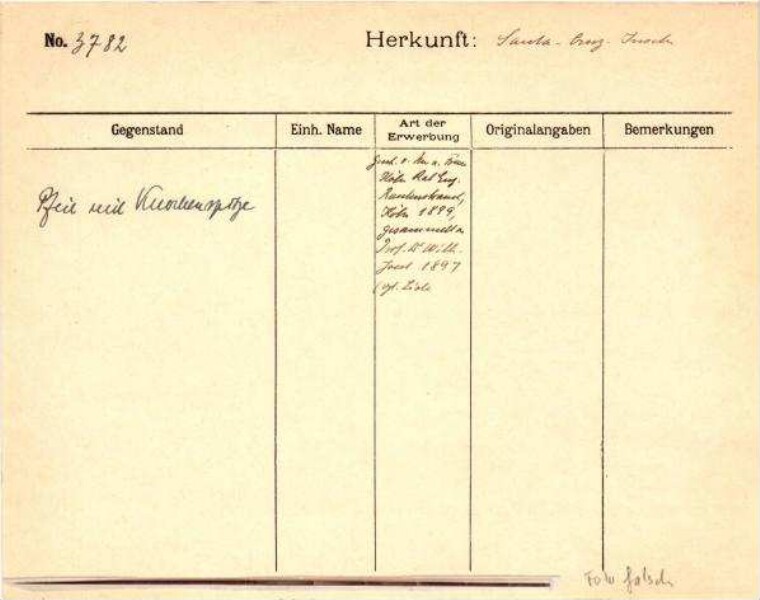 No. 3782 Herkunft: Santa-Cruz-Inseln
Gegenstand Einh. Name Art der Erwerbung Originalangaben Bemerkungen
Pfeil mit Knochenspitze
Gesch. v. Hrn u. Frau
Rautenstrauch,
Köln 1899,
gesammelt v.
Prof. Dr Wilh.
Joest 1897
(vgl. Liste
Foto falsch